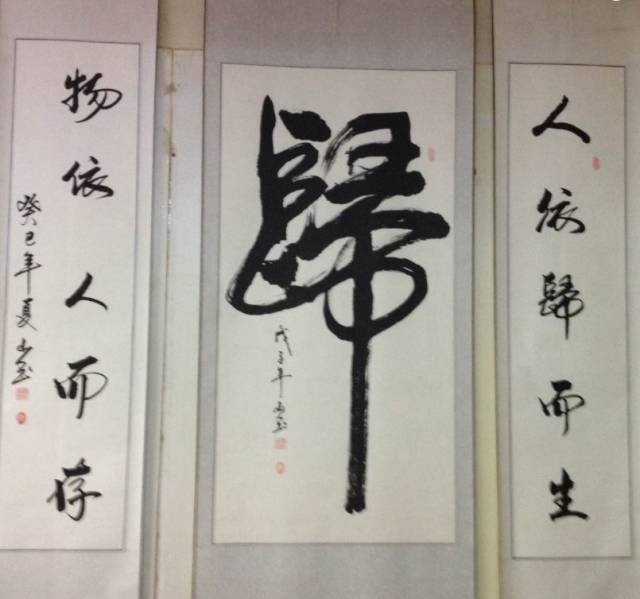 人依歸而生
歸
戊子年
物依人而存
癸巳年夏